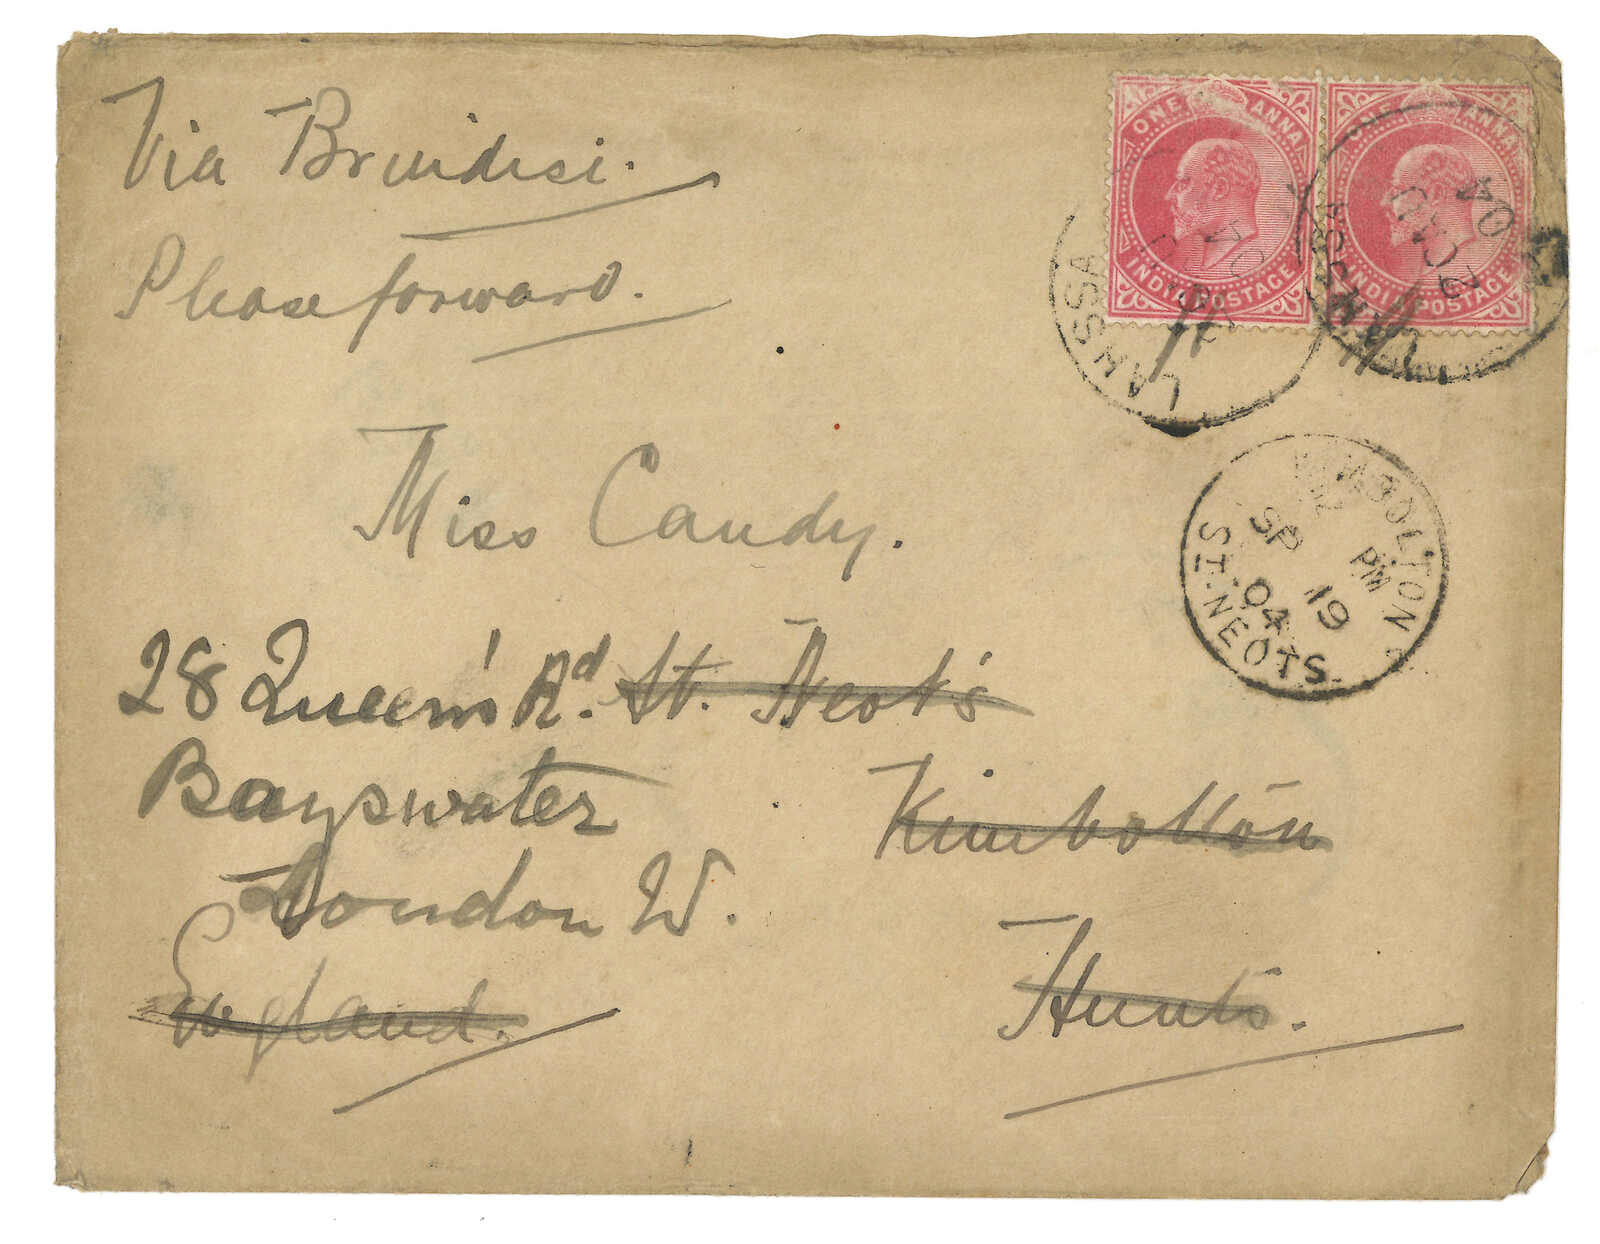 Via Brindisi.
Please forward.
ONE ANNA
INDIA POSTAGE
ANNA
INDIA POSTAGE
LANSSA
04
KIMBOLTON
PM
SP 19
04
ST. NEOTS.
Miss Candy.
28 Queen's Rd. St. Neot's
Bayswater Kimbolton
London W.
England. Hunts.